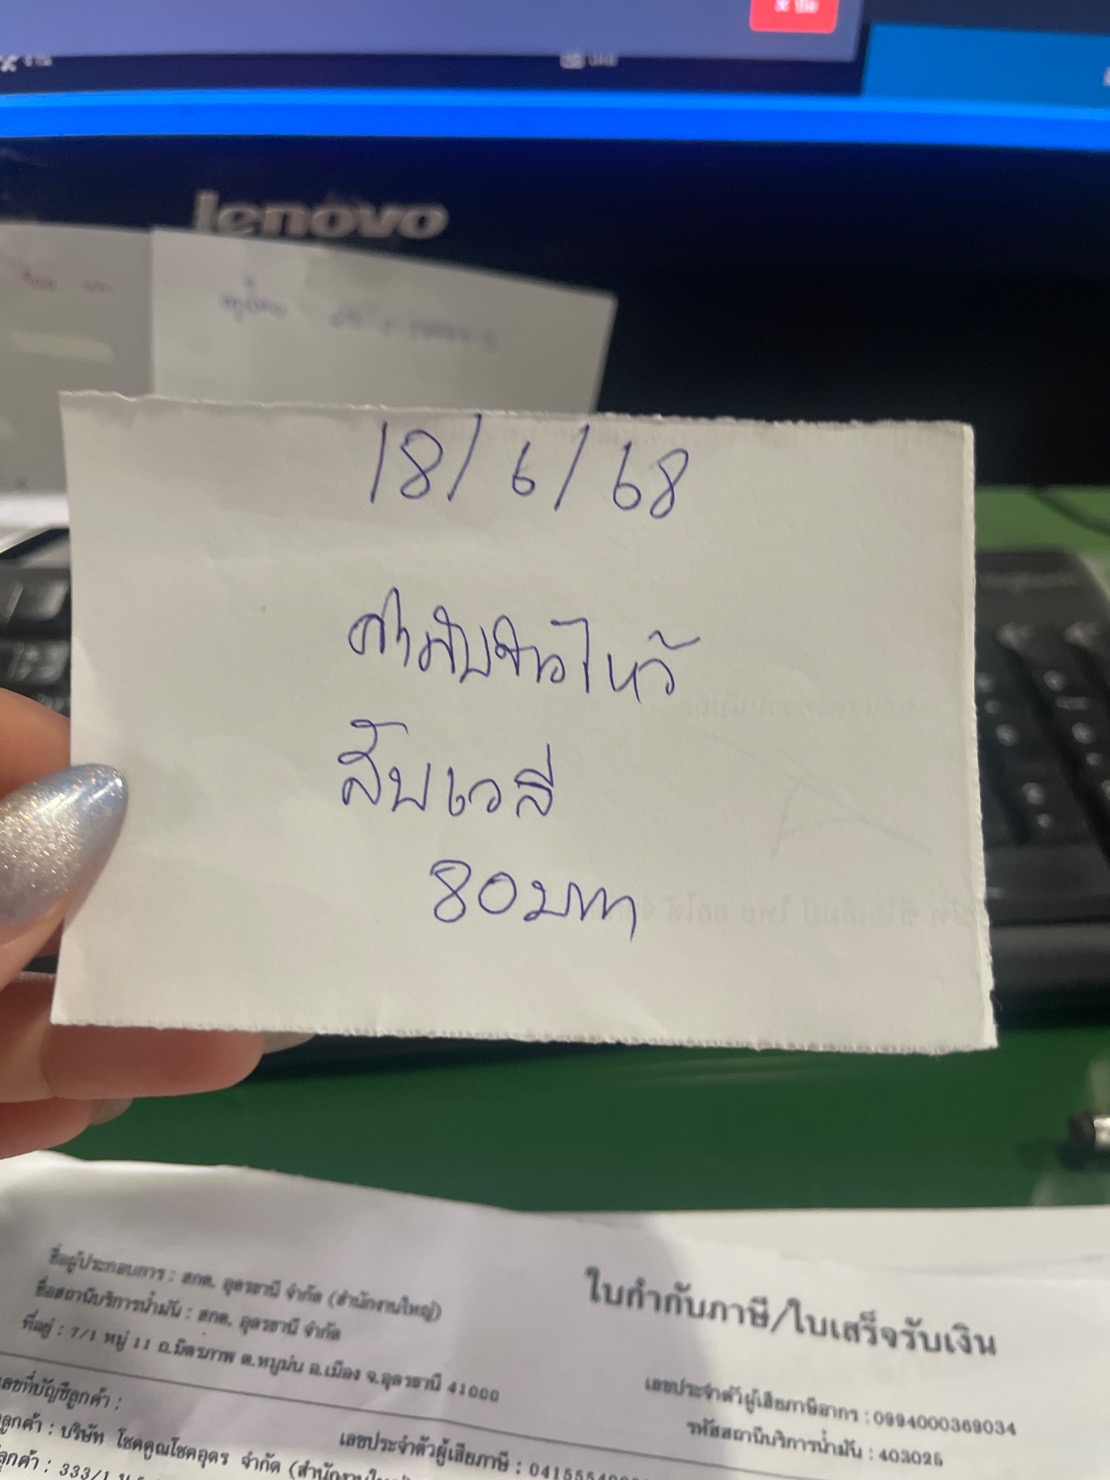 lenovo
18/6/68
ค่ากับข้าวไหว้
สัมเวสี
80บาท
ชื่อผู้ประกอบการ : สกต. อุดรธานี จำกัด (สำนักงานใหญ่)
ชื่อสถานีบริการน้ำมัน : สกต. อุดรธานี จำกัด
ที่อยู่ : 7/1 หมู่ 11 ถ.มิตรภาพ ต.หนูม่น อ.เมือง จ.อุดรธานี 41000
ใบกำกับภาษี/ใบเสร็จรับเงิน
เลขประจำตัวผู้เสียภาษีอากร : 0994000369034
รหัสสถานีบริการน้ำมัน : 403025
เลขที่บัญชีลูกค้า :
ลูกค้า : บริษัท โชคคูณโชคอุดร จำกัด
เลขประจำตัวผู้เสียภาษี :